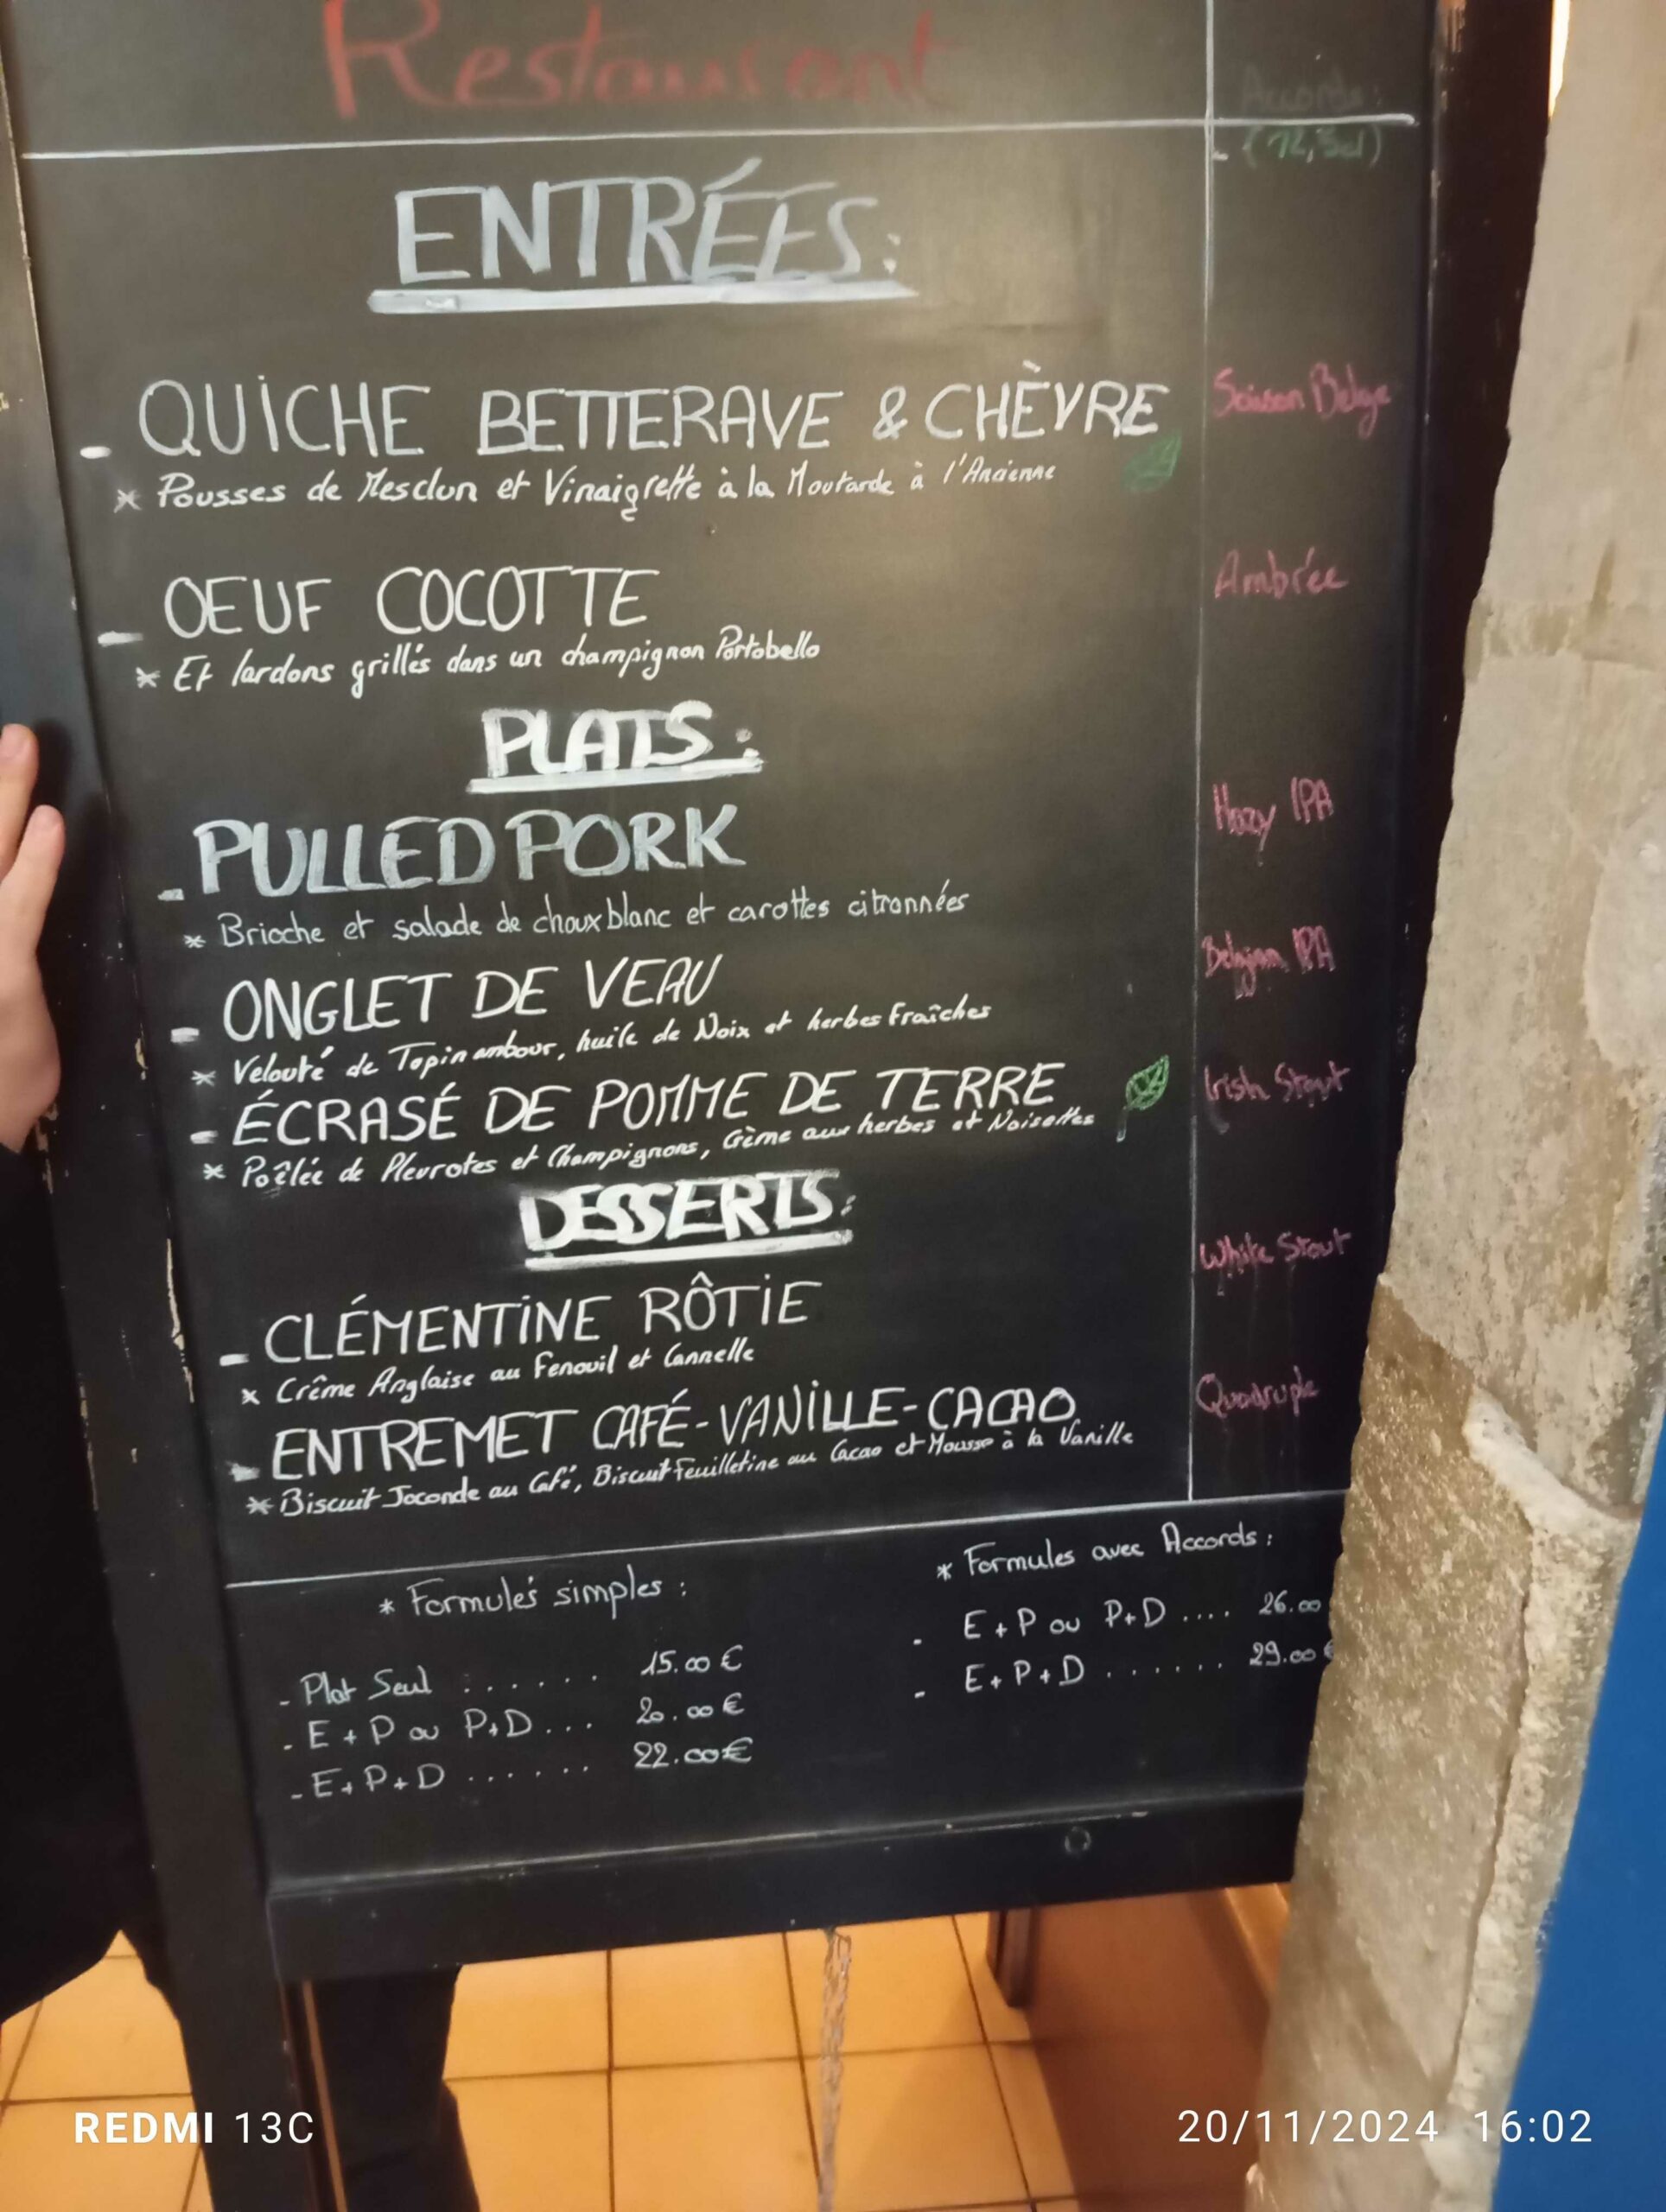 Restaurant
Accords:
(12,5cl)
ENTRÉES:
- QUICHE BETTERAVE & CHÈVRE
Saison Belge
* Pousses de Mesclun et Vinaigrette à la Moutarde à l'Ancienne
- OEUF COCOTTE
Ambrée
* Et lardons grillés dans un champignon Portobello
PLATS:
- PULLED PORK
Hazy IPA
* Brioche et salade de choux blanc et carottes citronnées
- ONGLET DE VEAU
Belgian IPA
* Velouté de Topinambour, huile de Noix et herbes Fraîches
- ÉCRASÉ DE POMME DE TERRE
Irish Stout
* Poêlée de Pleurotes et Champignons, Crème aux herbes et Noisettes
DESSERTS:
- CLÉMENTINE RÔTIE
White Stout
* Crême Anglaise au Fenouil et Cannelle
- ENTREMET CAFÉ-VANILLE-CACAO
Quadruple
* Biscuit Joconde au Café, Biscuit Feuilletine au Cacao et Mousse à la Vanille
* Formules simples :
- Plat Seul : . . . . . . 15.00 €
- E + P ou P+D ... 20.00 €
- E+P+D ...... 22.00€
* Formules avec Accords :
- E + P ou P+D .... 26.00
- E+P+D ...... 29.00 €
REDMI 13C
20/11/2024 16:02